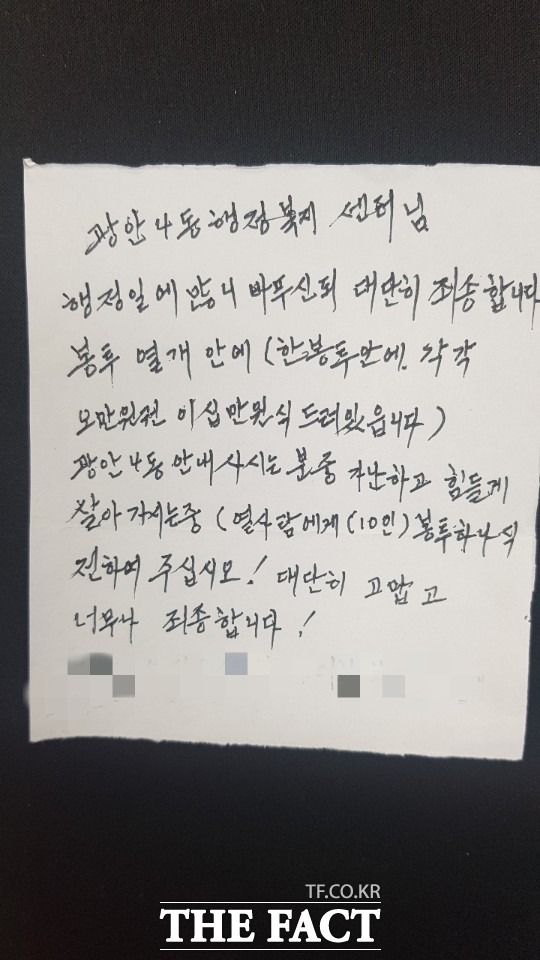 광안4동행정복지 센터님
행정일에 많니 바뿌신되 대단히 죄송합니다
봉투 열개 안에 (한봉투안에. 각각
오만원권 이십만원식 드러있읍니다)
광안4동안내사시는 분중 가난하고 힘들게
살아가시는중 (열사람에게 (10인) 봉투하나식
전하여 주십시오! 대단히 고맙고
너무나 죄종합니다!
TF.CO.KR
THE FACT